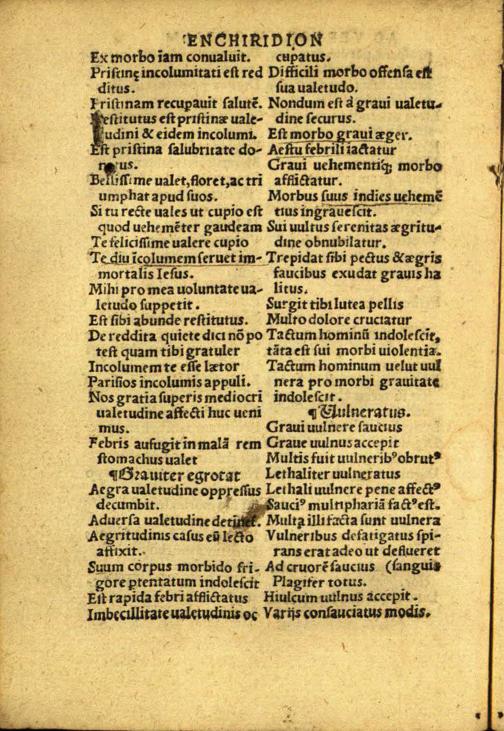 ENCHIRIDION
Ex morbo iam conualuit.
Pristinę incolumitati est red
ditus.
Pristinam recupauit salutē.
Restitutus est pristinæ uale-
tudini & eidem incolumi.
Est pristina salubritate do-
natus.
Bellissime ualet, floret, ac tri
umphat apud suos.
Si tu recte uales ut cupio est
quod uehemēter gaudeam
Te felicissime ualere cupio
Te diu īcolumem seruet im-
mortalis Iesus.
Mihi pro mea uoluntate ua-
letudo suppetit.
Est sibi abunde restitutus.
De reddita quiete dici nō po
test quam tibi gratuler
Incolumem te esse lætor
Parisios incolumis appuli.
Nos gratia superis mediocri
ualetudine affecti huc ueni
mus.
Febris aufugit in malā rem
stomachus ualet
¶Grauiter egrotat
Aegra ualetudine oppressus
decumbit.
Aduersa ualetudine detinet.
Aegritudinis casus eū lecto
affixit.
Suum corpus morbido fri-
gore ptentatum indolescit
Est rapida febri afflictatus
Imbecillitate ualetudinis oc
cupatus.
Difficili morbo offensa est
sua ualetudo.
Nondum est à graui ualetu-
dine securus.
Est morbo graui æger.
Aestu febrili iactatur
Graui uehementiq; morbo
afflictatur.
Morbus suus indies uehemē
tius ingrauescit.
Sui uultus serenitas ægritu-
dine obnubilatur.
Trepidat sibi pectus & ægris
faucibus exudat grauis ha
litus.
Surgit tibi lutea pellis
Multo dolore cruciatur
Tactum hominū indolescit,
tāta est sui morbi uiolentia.
Tactum hominum uelut uul
nera pro morbi grauitate
indolescit.
¶Uulneratus.
Graui uulnere saucius
Graue uulnus accepit
Multis fuit uulneribꝰ obrutꝰ
Lethaliter uulneratus
Lethali uulnere pene affectꝰ
Sauciꝰ multiphariā factꝰ est.
Multa illi facta sunt uulnera
Vulneribus defatigatus spi-
rans erat adeo ut deflueret
Ad cruorē saucius (sanguis
Plagifer totus.
Hiulcum uulnus accepit.
Varijs consauciatus modis.